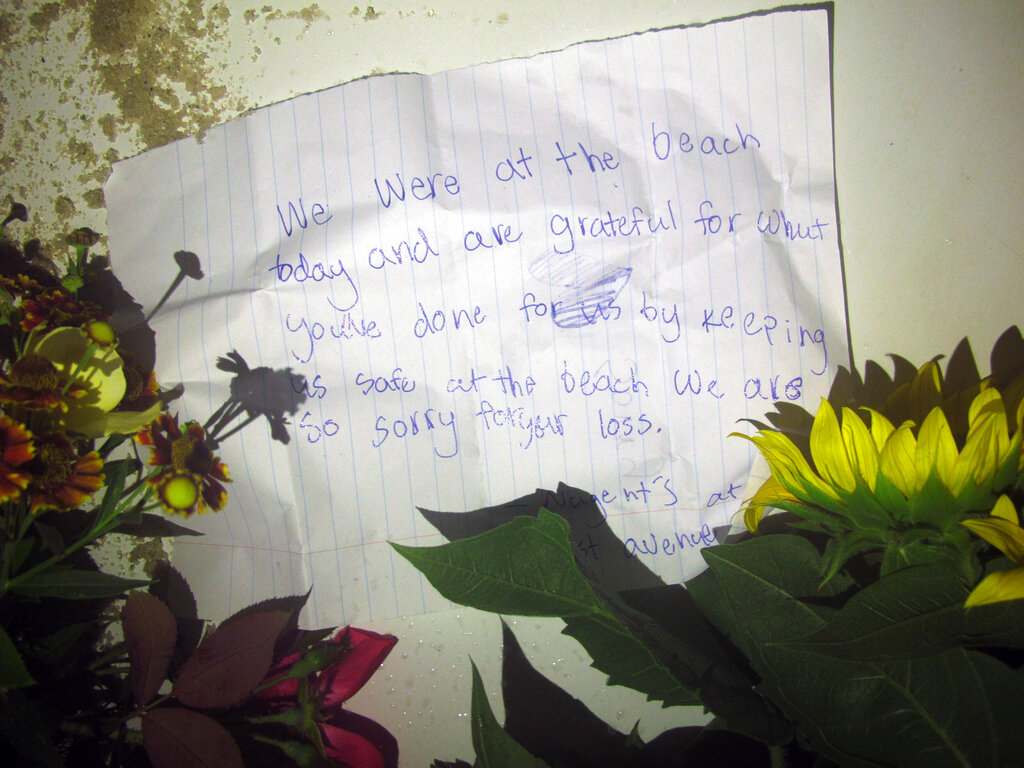 We were at the beach
today and are grateful for what
you've done for us by keeping
us safe at the beach We are
so sorry for your loss.
Nugent's at
st avenue